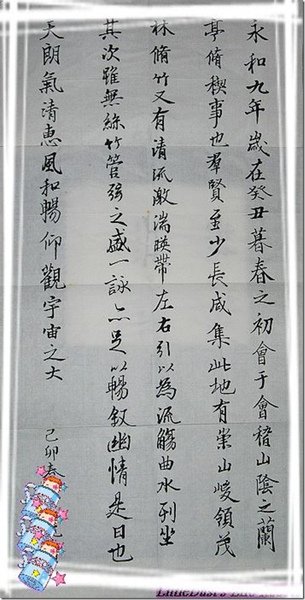 永和九年歲在癸丑暮春之初會于會稽山陰之蘭
亭脩禊事也羣賢至少長咸集此地有崇山峻領茂
林脩竹又有清流激湍暎帶左右引以為流觴曲水列坐
其次雖無絲竹管弦之盛一詠亦足以暢敘幽情是日也
天朗氣清惠風和暢仰觀宇宙之大
己卯春